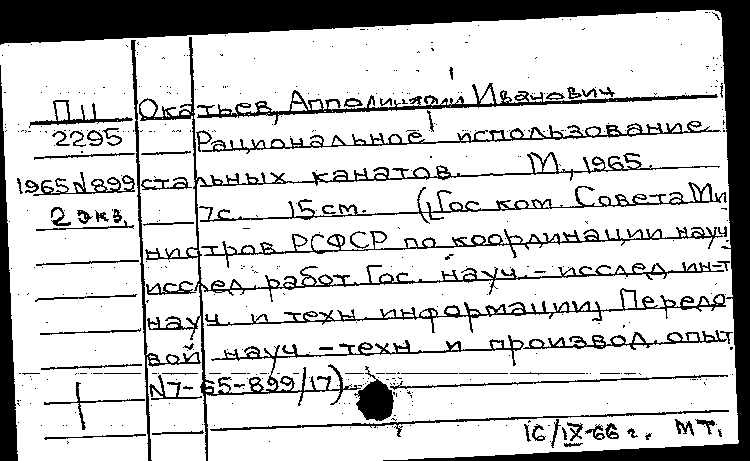 П11 Окатьев, Апполинарий Иванович
2295 Рациональное использование
1965 N 899 стальных канатов. М., 1965.
2 экз. 7с. 15 cm. (Гос ком. Совета Ми
нистров РСФСР по координации науч
исслед работ. Гос. науч. - исслед ин-т
науч и техн информации) Передо-
вой науч - техн и производ. опыт
N 7-65-899/17)
16/IX-66 г. МТ.